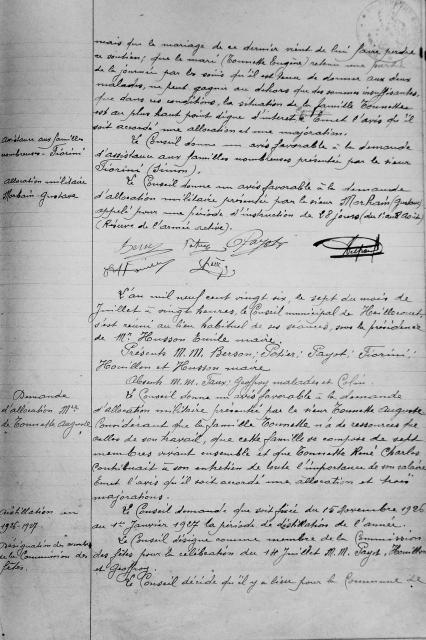 mais que le mariage de ce dernier vient de lui faire perdre
ce soutien; que le mari (Tonnette Eugène) retenu une partie
de la journée par les soins qu'il est tenu de donner aux deux
malades, ne peut gagner au dehors que des sommes insuffisantes,
que dans ces conditions, la situation de la famille Tonnette
est au plus haut point digne d'intérêt. Emet l'avis qu'il
soit accordé, une allocation et une majoration.
Assistance aux familles
nombreuses - Fiorini
Le Conseil donne un avis favorable à la demande
d'assistance aux familles nombreuses présentée par le sieur
Fiorini (Simon).
allocation militaire
Morhain Gustave
Le Conseil donne un avis favorable à la demande
d'allocation militaire présentée par le sieur Morhain (Gustave)
appelé pour une période d'instruction de 28 jours (du 1er au 28 Août)
(Réserve de l'armée active).
Payot
L'an mil neuf cent vingt six, le sept du mois de
Juillet à vingt heures, le Conseil municipal de
s'est réuni au lieu habituel de ses séances, sous la présidence
de Mr Husson Emile maire.
Présents M.M. Berson; Potier; Payot; Fiorini;
Houillon et Husson maire
Absents M.M. Geoffroy malades et Colin.
Demande
d'allocation Mre
de Tonnette Auguste
Le Conseil donne un avis favorable à la demande
d'allocation militaire présentée par le sieur Tonnette Auguste
Considérant que la famille Tonnette n'a de ressources que
celles de son travail, que cette famille se compose de sept
membres vivant ensemble et que Tonnette René Charles
contribuait à son entretien de toute l'importance de son salaire
Emet l'avis qu'il soit accordé une allocation et trois
majorations.
Distillation en
1926-1927
Le Conseil demande que soit fixé du 15 Novembre 1926
au 1er Janvier 1927 la période de distillation de l'année.
Désignation de membres
de la Commission des
fêtes.
Le Conseil désigne comme membre de la Commission
des fêtes pour la célébration du 14 Juillet M.M. Payot, Houillon
et Geoffroy.
Le Conseil décide qu'il y a lieu pour la Commune de